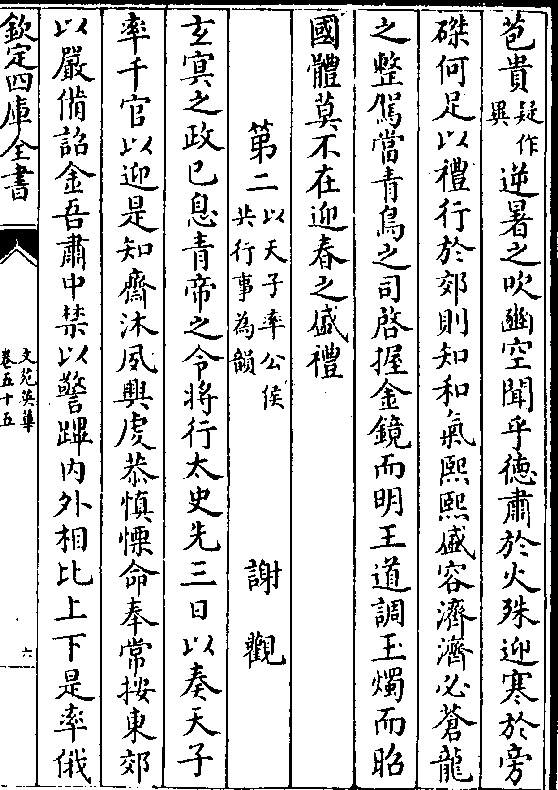 苞貴疑作異逆暑之吹豳空聞乎德肅於火殊迎寒於旁
磔何足以禮行於郊則知和氣熙熙盛容濟濟必蒼龍
之整駕當青鳥之司啓握金鏡而明王道調玉燭而昭
國體莫不在迎春之盛禮
第二以天子率公侯共行事為韻 謝觀
玄冥之政已息青帝之令將行太史先三日以奏天子
率千官以迎是知齊沐夙興虔恭慎慄命奉常按東郊
以嚴備詔金吾肅中禁以警蹕内外相比上下是率俄
欽定四庫全書
文苑英華
卷五十五
六